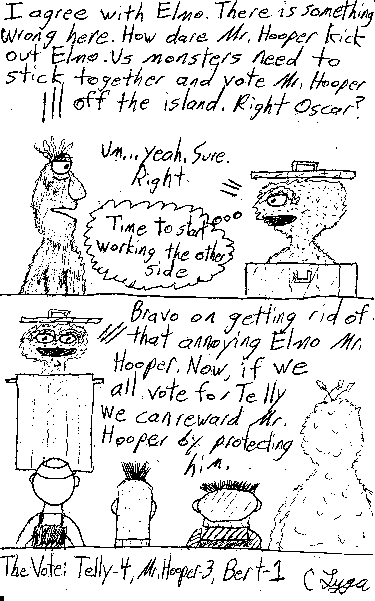 I agree with Elmo. There is something
wrong here. How dare Mr. Hooper kick
out Elmo. Us monsters need to
stick together and vote Mr. Hooper
off the island. Right Oscar?
Um... yeah. Sure.
Right.
Time to start
working the other
side
Bravo on getting rid of
that annoying Elmo Mr.
Hooper. Now, if we
all vote for Telly
we can reward Mr.
Hooper by protecting
him.
The Vote: Telly-4, Mr. Hooper-3, Bert-1
C Lyga